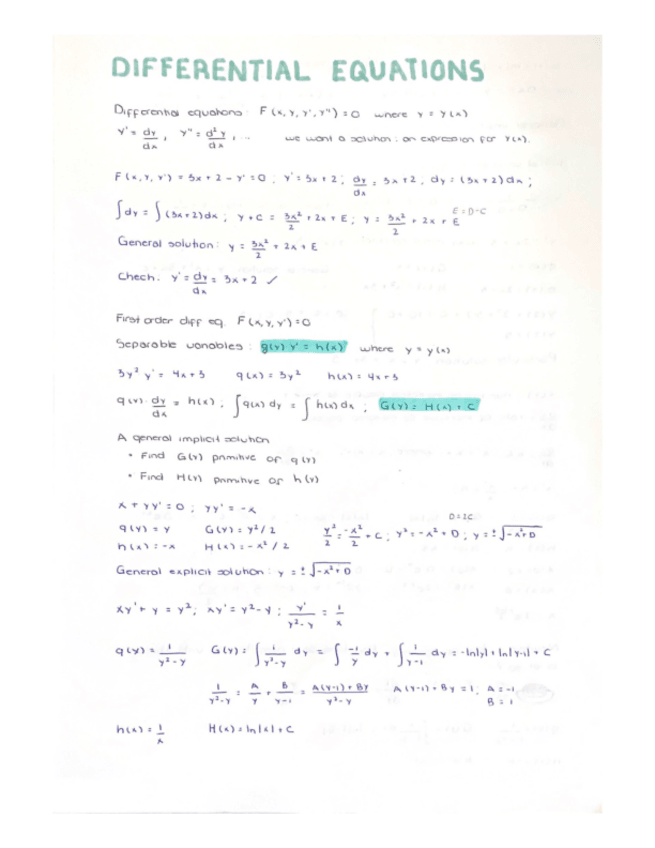 DIFFERENTIAL EQUATIONS
Differential equations: F(x, y, y', y'') = 0 where y = y(x)
y' = dy/dx, y'' = d²y/dx, ... we want a solution: an expression for y(x).
F(x, y, y') = 3x + 2 - y' = 0; y' = 3x + 2; dy/dx = 3x + 2, dy = (3x + 2) dx;
∫dy = ∫(3x + 2) dx; y + C = 3x²/2 + 2x + E; y = 3x²/2 + 2x + E E = D - C
General solution: y = 3x²/2 + 2x + E
Check: y' = dy/dx = 3x + 2 ✓
First order diff eq. F(x, y, y') = 0
Separable variables: g(y) y' = h(x) where y = y(x)
3y² y' = 4x + 3 g(x) = 3y² h(x) = 4x + 3
g(y) · dy/dx = h(x); ∫g(x) dy = ∫h(x) dx; G(y) = H(x) + C
A general implicit solution
• Find G(y) primitive of g(y)
• Find H(y) primitive of h(y)
x + yy' = 0; yy' = -x
g(y) = y G(y) = y²/2 y²/2 = -x²/2 + C; y² = -x² + D; y = ±√-x²+D D = 2C
h(x) = -x H(x) = -x²/2
General explicit solution: y = ±√-x²+D
xy' + y = y²; xy' = y² - y; y'/y²-y = 1/x
g(y) = 1/y²-y G(y) = ∫ 1/y²-y dy = ∫ -1/y dy + ∫ 1/y-1 dy = -ln|y| + ln|y-1| + C
1/y²-y = A/y + B/y-1 = A(y-1) + By/y²-y A(y-1) + By = 1; A = -1
B = 1
h(x) = 1/x H(x) = ln|x| + C